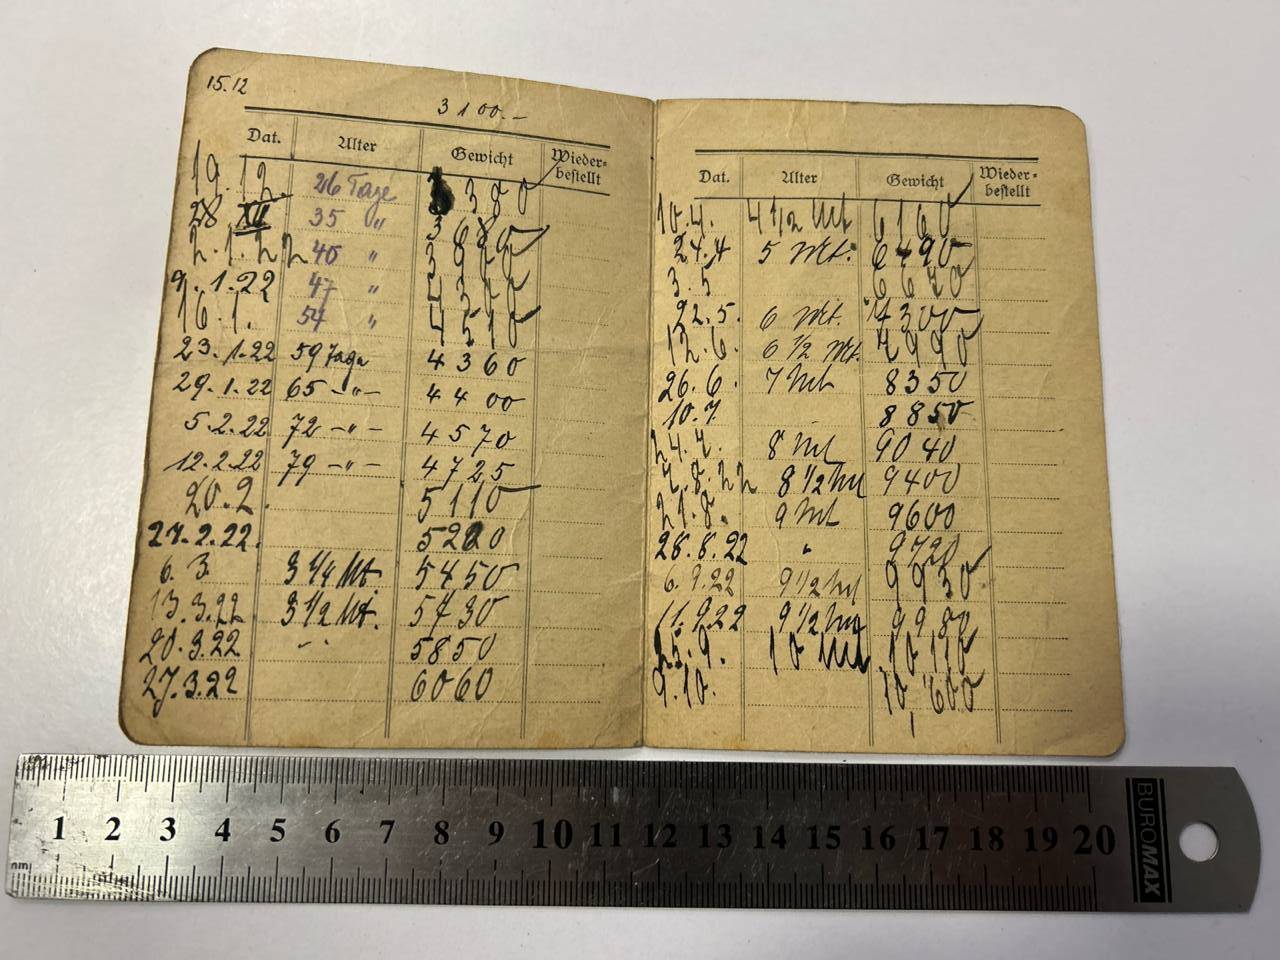 15.12
3100.-
Dat. Alter Gewicht Wieder=bestellt
19.12. 26 Tage 3380
28 XII 35 "
2.1.22 40 "
9.1.22 47 "
16.1. 54 " 4510
23.1.22 59 Tage 4360
29.1.22 65 -"- 4400
5.2.22 72 -"- 4570
12.2.22 79 -"- 4725
20.2. 5110
27.2.22. 5220
6.3. 3 1/4 Mt. 5450
13.3.22 3 1/2 Mt. 5730
20.3.22 " 5850
27.3.22 6060
Dat. Alter Gewicht Wieder=bestellt
10.4. 4 1/2 Mt 6160
24.4 5 Mt. 6490
3.5 6670
22.5. 6 Mt. 7300
12.6. 6 1/2 Mt. 7990
26.6. 7 Mt 8350
10.7. 8850
24.7. 8 Mt 9040
7.8.22 8 1/2 Mt 9400
21.8. 9 Mt 9600
28.8.22 " 9720
6.9.22 9 1/2 Mt 9930
11.9.22 9 1/2 Mt 9980
25.9. 10 Mt. 10170
9.10. 10,600
1 2 3 4 5 6 7 8 9 10 11 12 13 14 15 16 17 18 19 20
BUROMAX